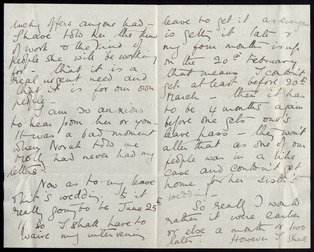 lucky offers anyone had –
I have told her the kind
of work & the kind of
people she will be working
for – that it is a
real urgent need and
that it is for our own
people –
I am so anxious
to hear from her or you –
It was a bad moment
when Norah told me
Moll had never had my
letters!
Now as to my leave
& wedding. Is it
really going to be June 25th
So I shall have to
waive my intervening
leave to get it as everyone
is getting it late &
my four month is up
on the 20th February
that means I couldn't
get it at least before 20th
March – then it has
to be 4 months again
before one gets one's
leave pass – they won't
alter that as one of our
people was in a like
case and couldn't get
home for her sister's
wedding –
So really I would
rather it were earlier
or else a month or two
later. However I shall